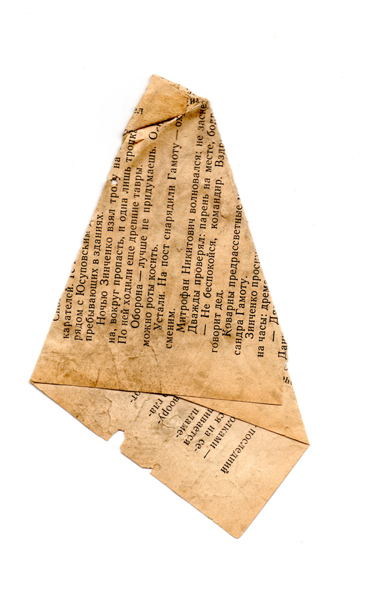 карателей. По
рядом с Юсуповским
пребывающих в зданиях.
Ночью Зинченко взял тропу на
на, вокруг пропасть, и одна лишь тропка
По ней ходили еще древние тавры.
Оборона — лучше не придумаешь.
можно роты косить.
Устали. На пост снарядили Гамоту —
сменим.
Митрофан Никитович волновался: не засне
Дважды проверял: парень на месте, бодр
— Не беспокойся, командир.
говорит дед.
Коварны предрассветные
сандра Гамоту.
Зинченко прос
на часы: дрем
последний
олками —
ся на се-
ивается
пламе-
гла-
воору